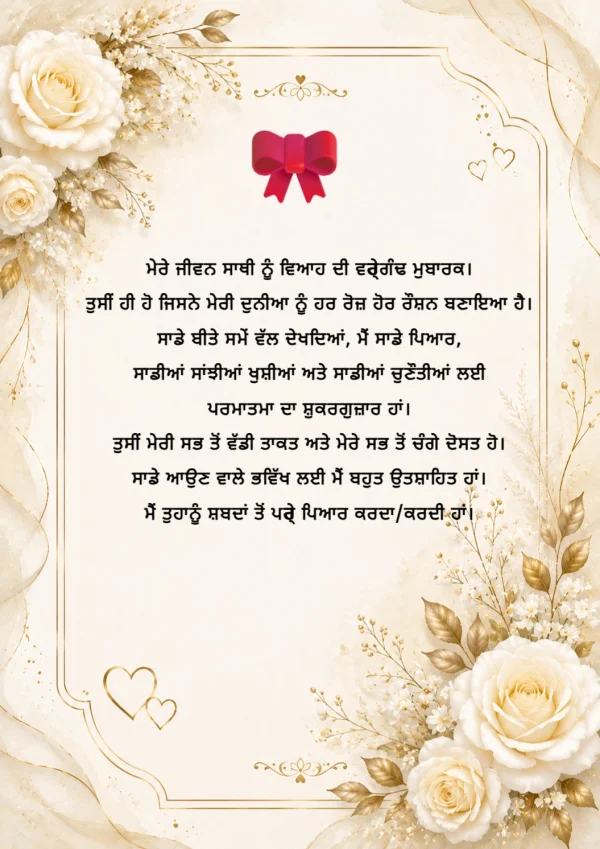 ਮੇਰੇ ਜੀਵਨ ਸਾਥੀ ਨੂੰ ਵਿਆਹ ਦੀ ਵਰ੍ਹੇਗੰਢ ਮੁਬਾਰਕ।
ਤੁਸੀਂ ਹੀ ਹੋ ਜਿਸਨੇ ਮੇਰੀ ਦੁਨੀਆ ਨੂੰ ਹਰ ਰੋਜ਼ ਹੋਰ ਰੌਸ਼ਨ ਬਣਾਇਆ ਹੈ।
ਸਾਡੇ ਬੀਤੇ ਸਮੇਂ ਵੱਲ ਦੇਖਦਿਆਂ, ਮੈਂ ਸਾਡੇ ਪਿਆਰ,
ਸਾਡੀਆਂ ਸਾਂਝੀਆਂ ਖੁਸ਼ੀਆਂ ਅਤੇ ਸਾਡੀਆਂ ਚੁਣੌਤੀਆਂ ਲਈ
ਪਰਮਾਤਮਾ ਦਾ ਸ਼ੁਕਰਗੁਜ਼ਾਰ ਹਾਂ।
ਤੁਸੀਂ ਮੇਰੀ ਸਭ ਤੋਂ ਵੱਡੀ ਤਾਕਤ ਅਤੇ ਮੇਰੇ ਸਭ ਤੋਂ ਚੰਗੇ ਦੋਸਤ ਹੋ।
ਸਾਡੇ ਆਉਣ ਵਾਲੇ ਭਵਿੱਖ ਲਈ ਮੈਂ ਬਹੁਤ ਉਤਸ਼ਾਹਿਤ ਹਾਂ।
ਮੈਂ ਤੁਹਾਨੂੰ ਸ਼ਬਦਾਂ ਤੋਂ ਪਰ੍ਹੇ ਪਿਆਰ ਕਰਦਾ/ਕਰਦੀ ਹਾਂ।